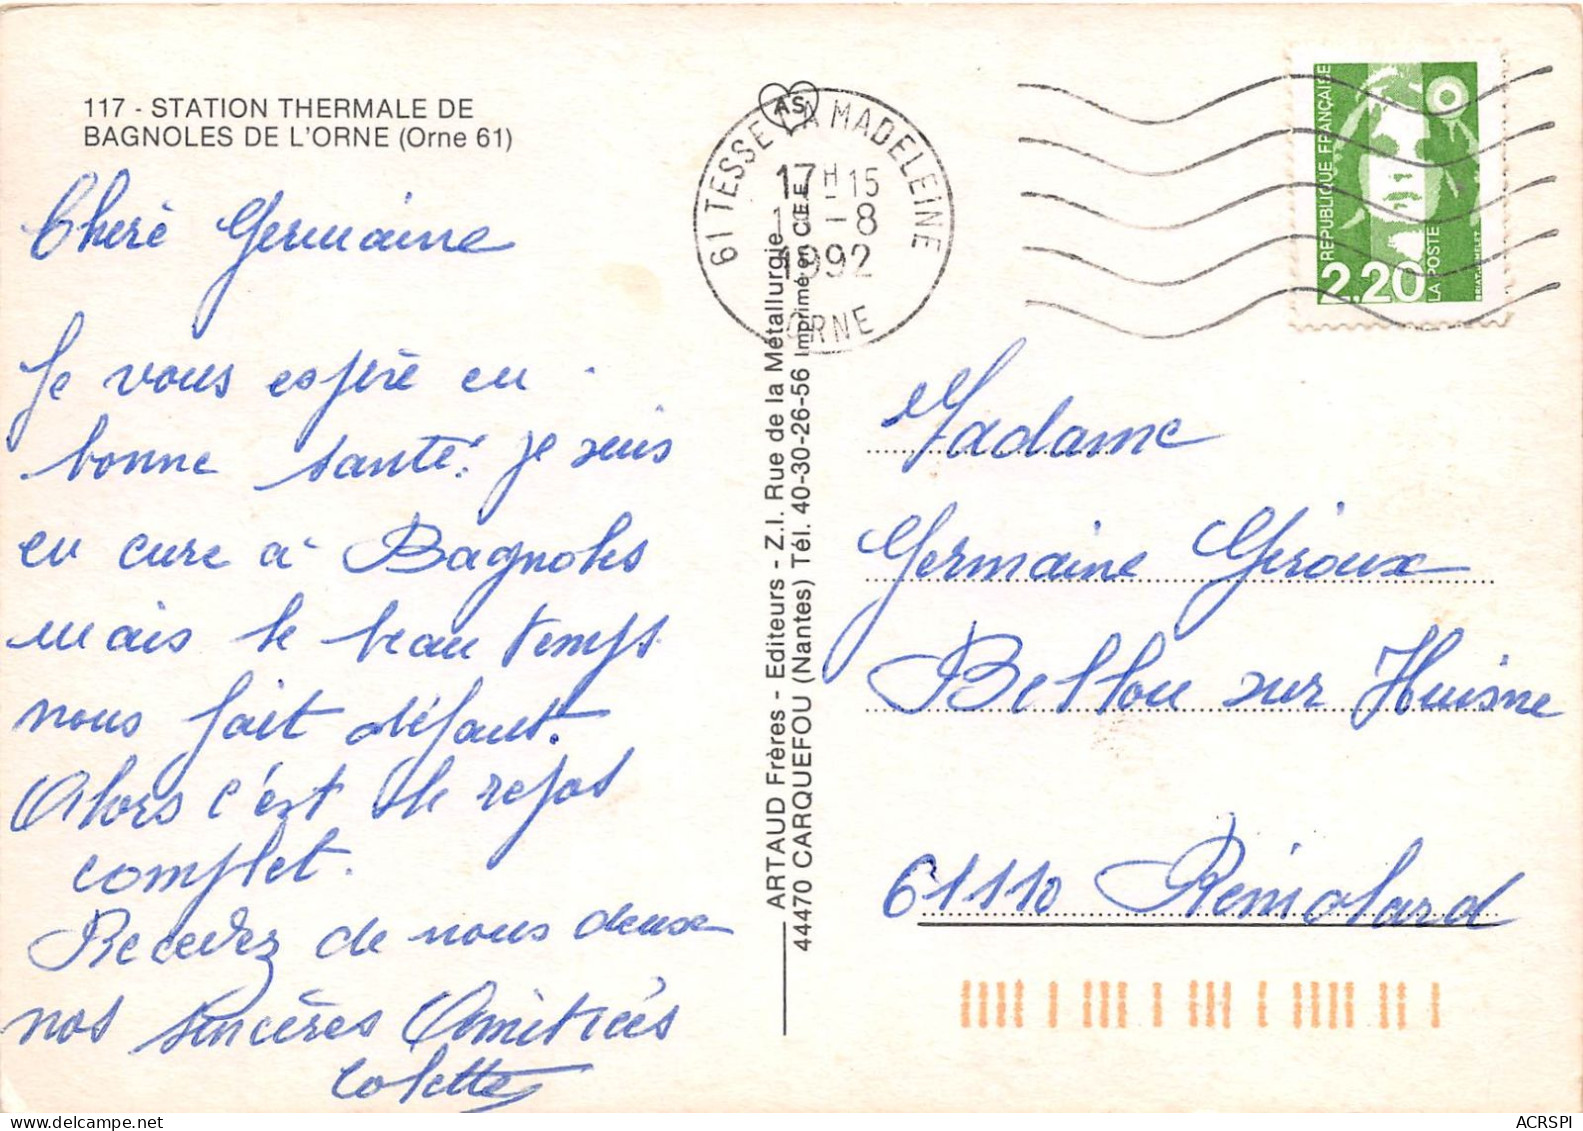 117 - STATION THERMALE DE
BAGNOLES DE L'ORNE (Orne 61)
Cheré Germaine
Je vous espère en
bonne santé. je suis
en cure à Bagnoles
mais le beau temps
nous fait défaut.
Alors c'est le repos
complet.
Recevez de nous deux
nos sincères Amitiés
Colette
ARTAUD Frères - Editeurs - Z.I. Rue de la Métallurgie
44470 CARQUEFOU (Nantes) Tél. 40-30-26-56 Imprimé en C.E.E.
AS
61 TESSE LA MADELEINE
17H15
-8
1992
ORNE
REPUBLIQUE FRANÇAISE
2.20
LA POSTE
BRIAT-JUMELET
Madame
Germaine Giroux
Bellou sur Huisne
61110 Rémalard
ACRSPI